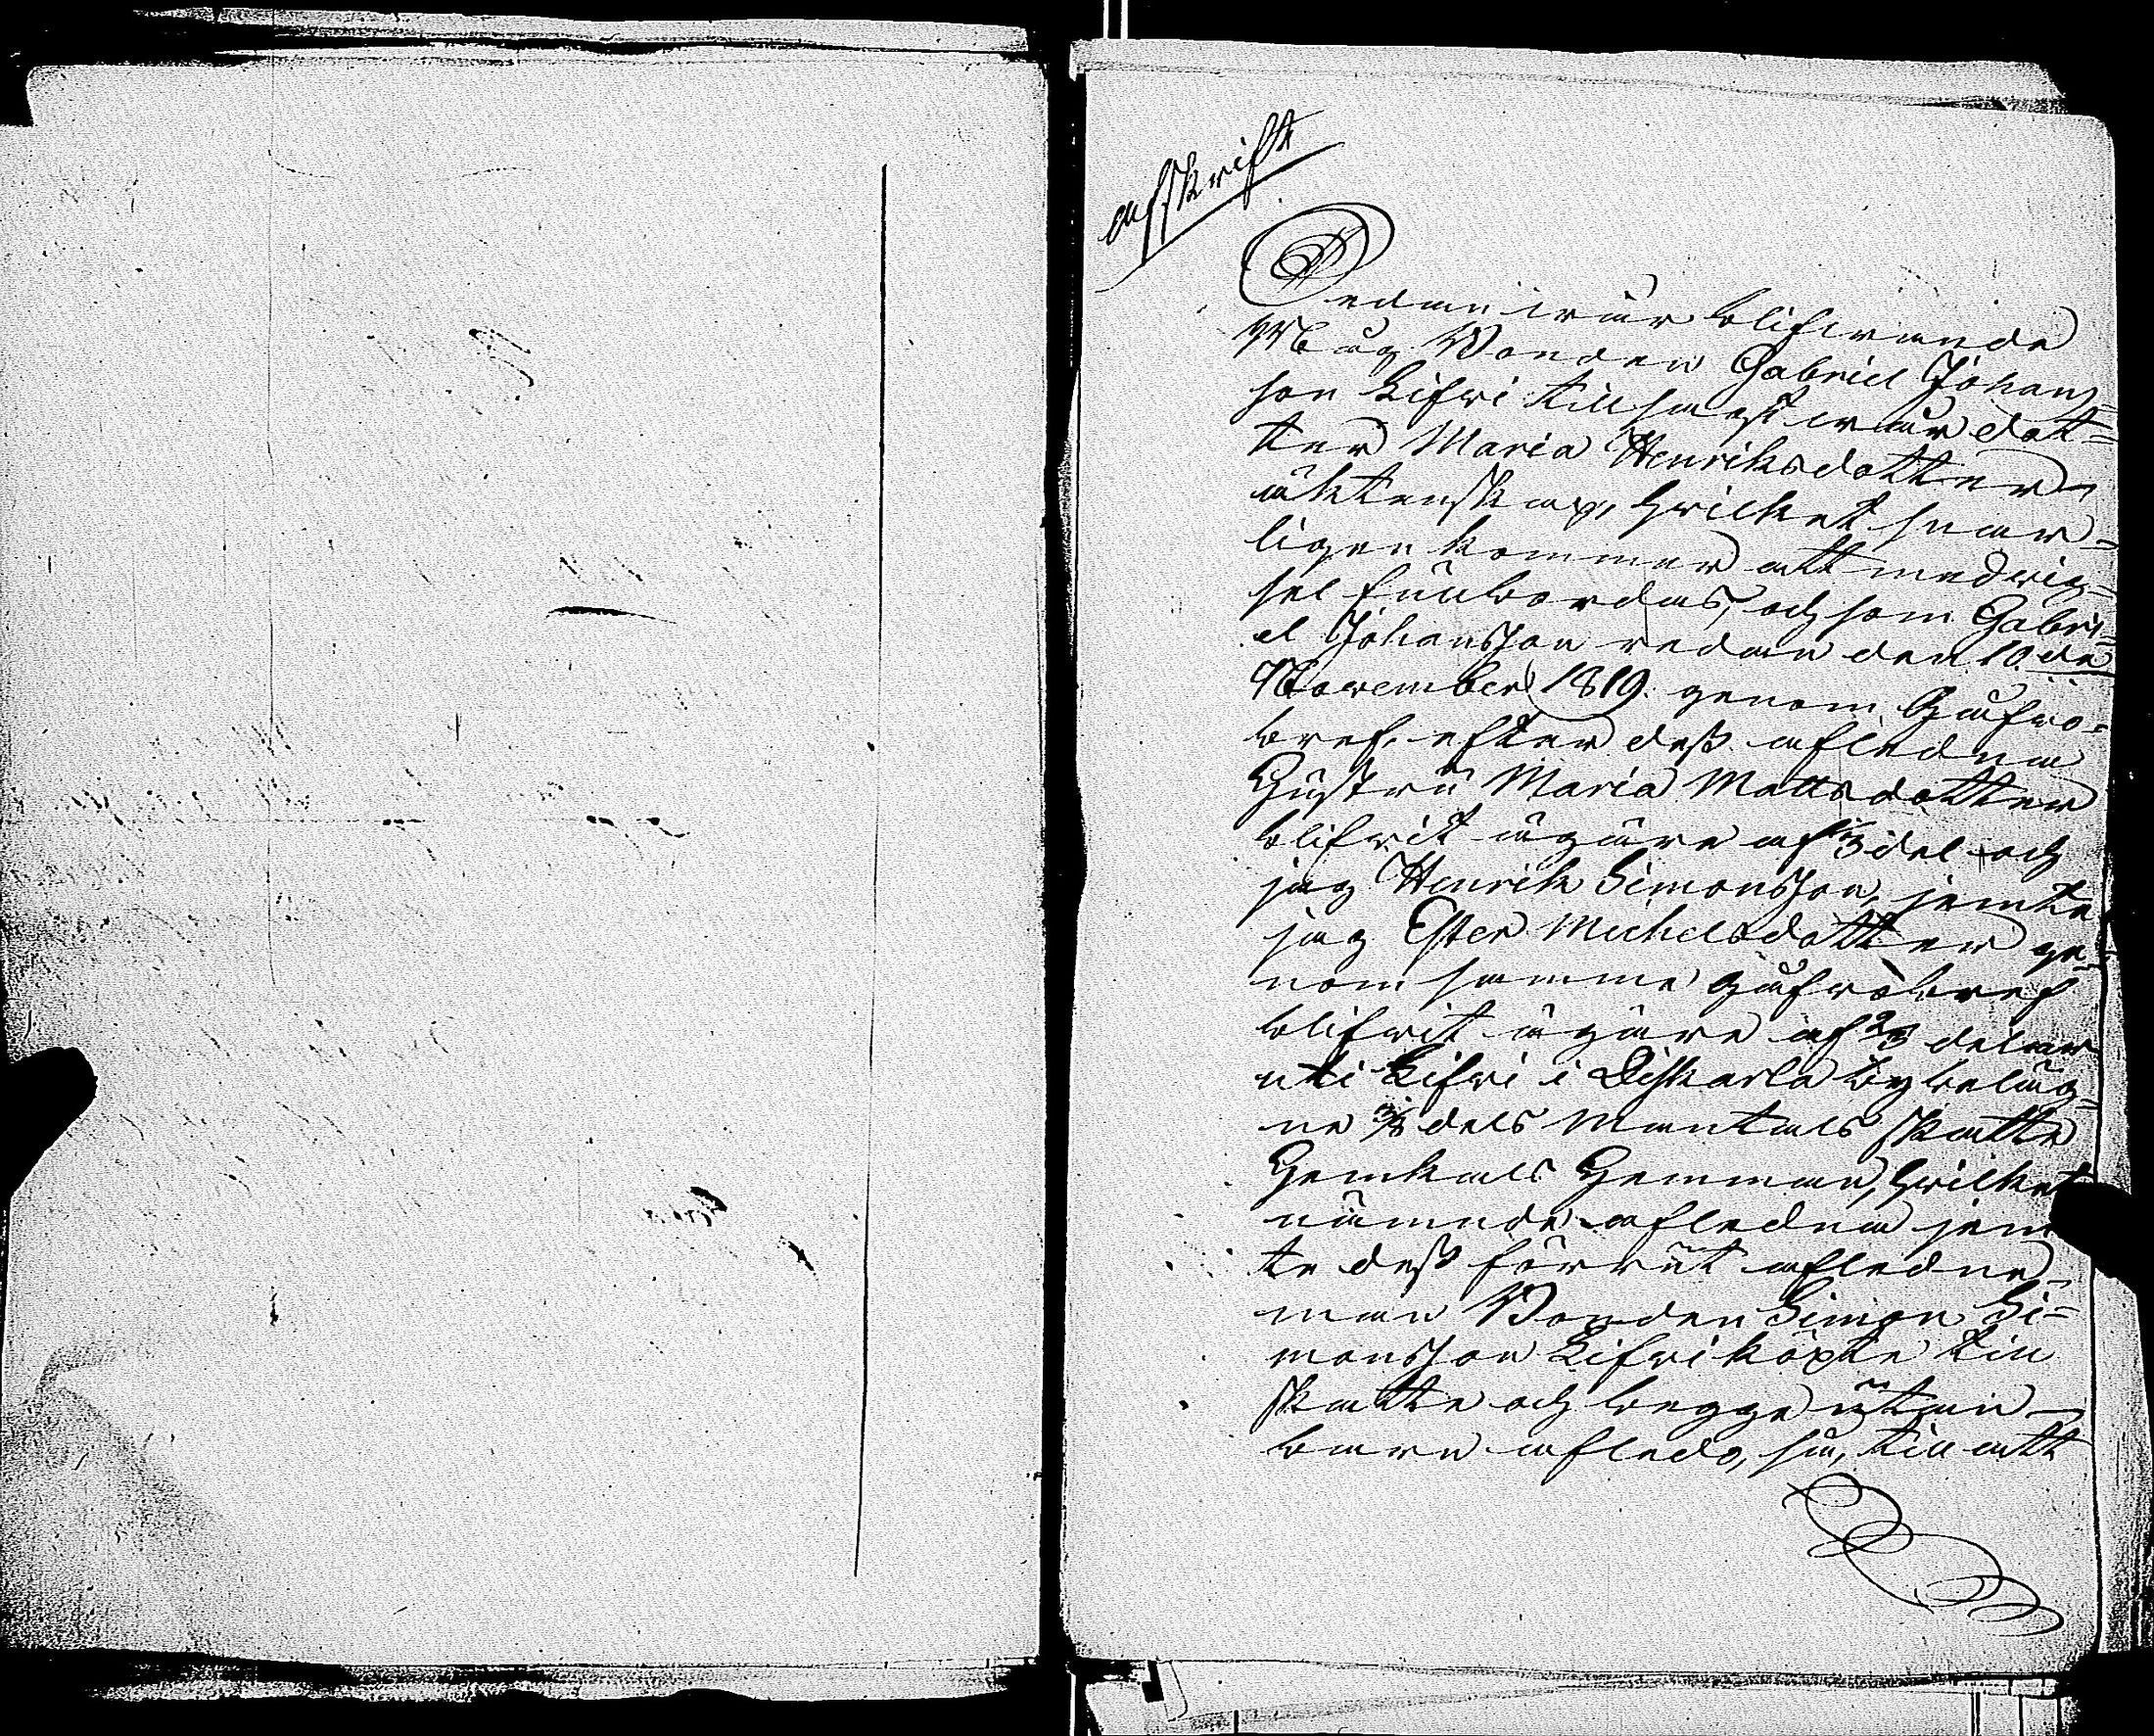 afskrift
Sedan wår blifwande
Måg Bonden Gabriel Johans-
son Lifwi tillsagt wår dot-
ter Maria Henriksdotter
äktenskap, hwilket snar-
ligen kommer att med wig-
sel fullbordas, och som Gabri-
el Johansson redan den 10de
November 1819 genom Gåfwo-
bref efter dess aflednа
Hustru Maria Mattsdotter
blifwit ägare af 1/3 del och
jag Henrik Simonsson, jemte
jag Ester Michelsdotter ge-
nom samme gåfwobref
blifwit ägare af 2/3 delar
uti Lifwi i Diskarla by beläg-
ne 3/8 dels Mantals Skatte
Hemkals Hemman, hwilket
nämnde aflednа jem
te dess förrut afledne
man Bonden Simon Si-
monsson Lifwi köpte till
skatte och begge utan
barn afledo, så, till att